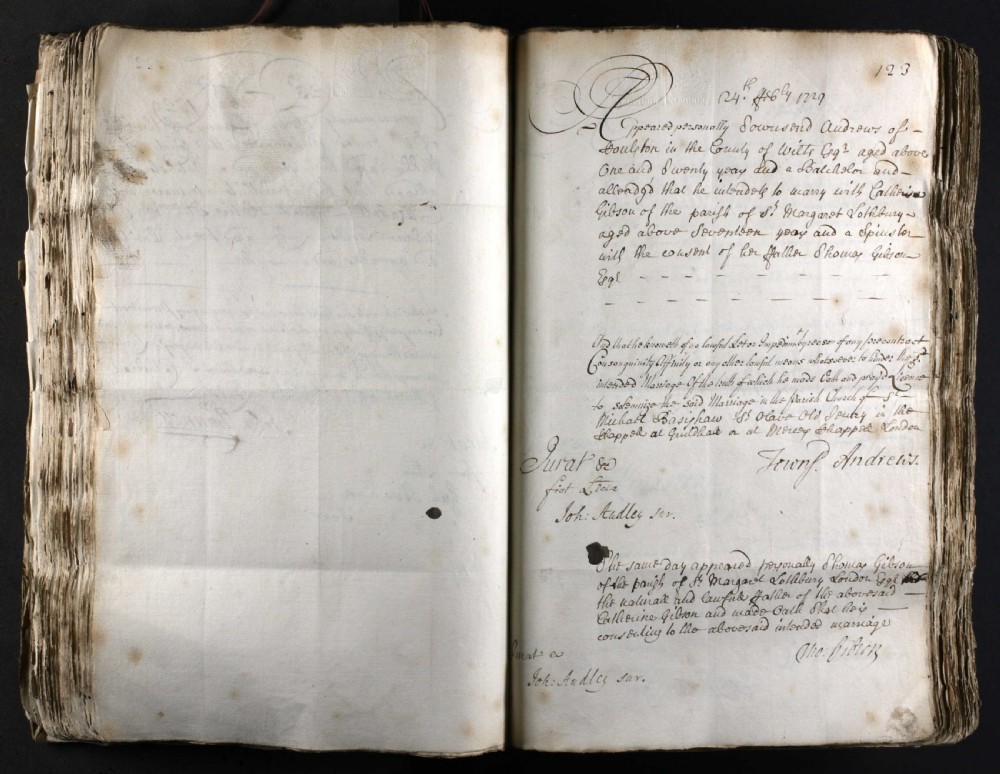 123
24th Feb:ry 1729
Appeared personally Townsend Andrews of
Doulton in the County of Wilts Esqr aged above
One and Twenty years and a Batchelor and
alledg'd that he intendeth to marry with Catherine
Gibson of the parish of St. Margaret Lothbury
aged above Seventeen years and a Spinster
with the consent of her ffather Thomas Gibson
Esqr
And that he knoweth of no lawful Let or Impedimt. by reason of any precontract
Consanguinity Affinity or any other lawful means whatsoever to hinder the sd.
intended Marriage Of the truth of which he made Oath and pray'd Licence
to solemnize the said Marriage in the Parish Church of St.
Michael Basishaw St. Olave Old Jewry in the
Chappel at Guildhall or at Mercers Chappel London
Jurat
Towns. Andrews.
Joh: Audley sur.
The same day appeared personally Thomas Gibson
of the parish of St. Margaret Lothbury London Esqr
the natural and lawfull ffather of the abovesaid
Catherine Gibson and made Oath That he is
consenting to the abovesaid intended marriage
Tho: Gibson
Jurat
Joh: Audley sur.